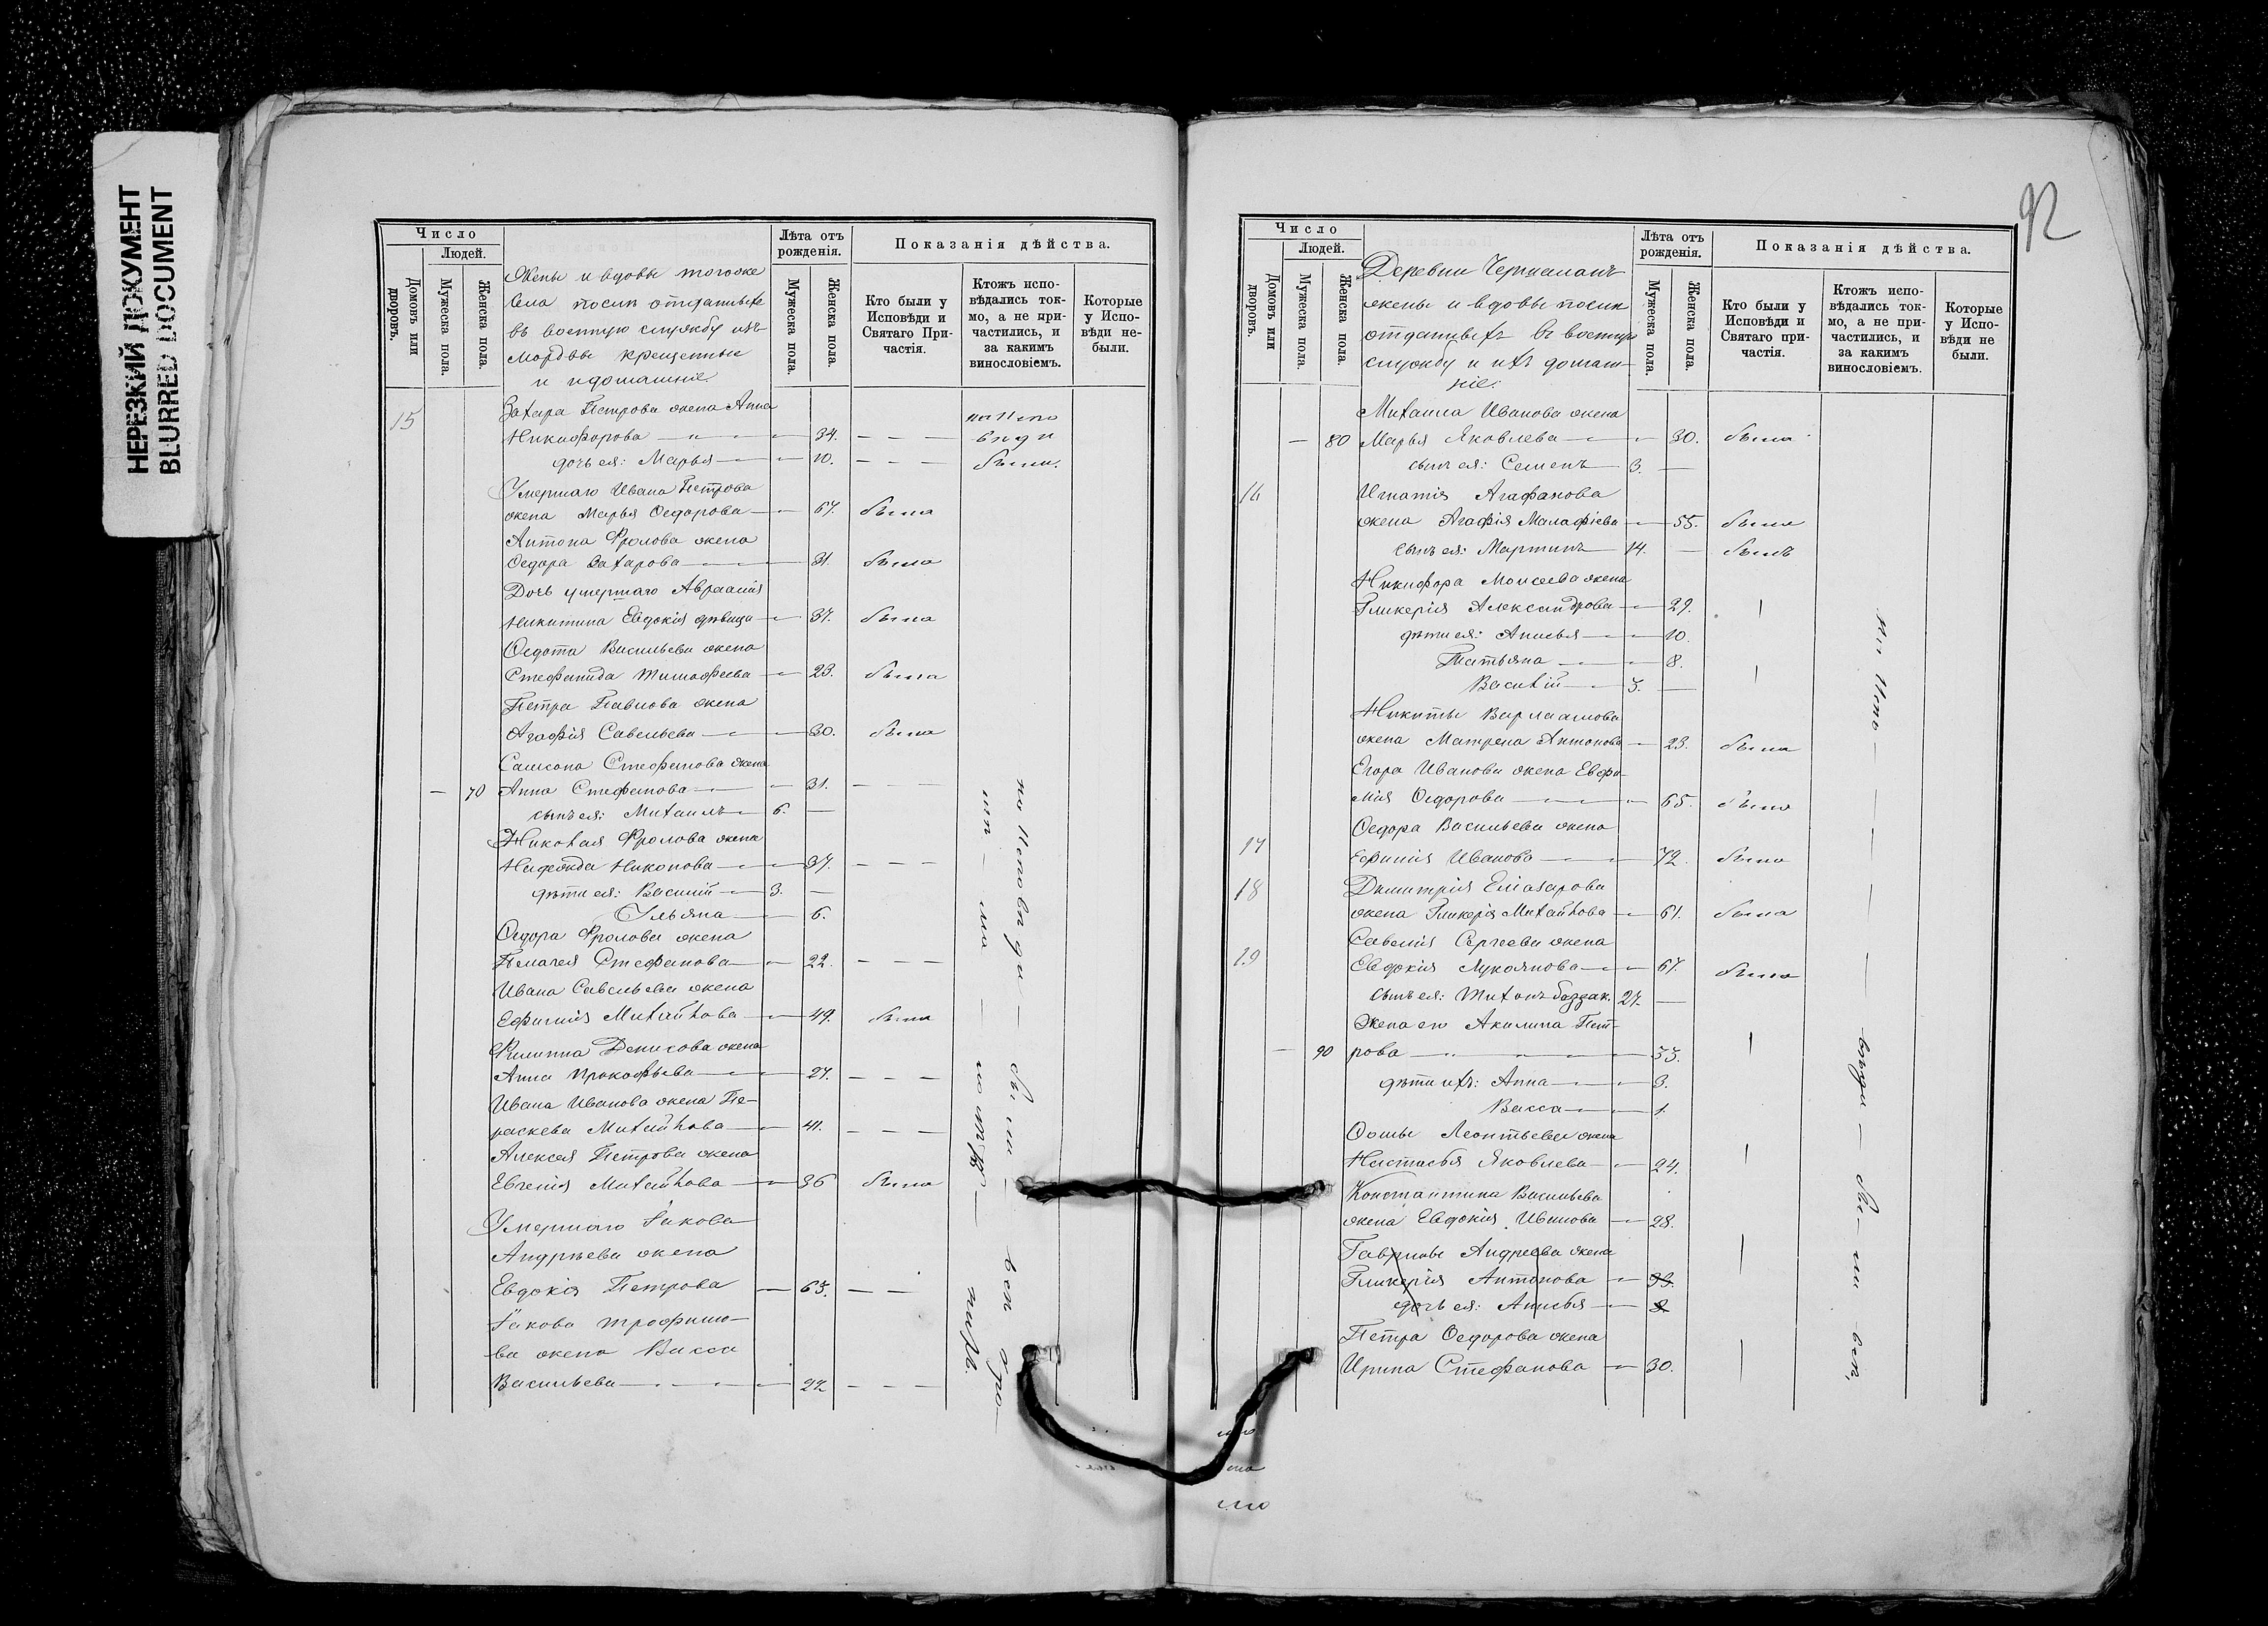 НЕРЕЗКИЙ ДОКУМЕНТ
BLURRED DOCUMENT
Число
Людей.
Домовъ или дворовъ.
Мужеска пола.
Женска пола.
Жены и вдовы тогоже
села после отдатыхъ
въ военную службу изъ
Мордвы крещенные
и ихдомашніе.
Лѣта отъ рожденія.
Мужеска пола.
Женска пола.
Показанія дѣйства.
Кто были у Исповѣди и Святаго Причастія.
Ктожъ исповѣдались токмо, а не причастились, и за какимъ винословіемъ.
Которые у Исповѣди небыли.
15 Захара Петрова жена Анна
Никифорова 34.
дочь ея: Марья 10. были.
Умершаго Ивана Петрова
жена Марья Ѳедорова 67. была
Антона Фролова жена
Ѳедора Захарова 31. была
Дочь умершаго Авраамія
Никитина Евдокія дѣвица 37. была
Ѳедота Васильева жена
Стефанида Тимофеева 23. была
Петра Павлова жена
Агафія Савельева 30. была
Самсона Стефанова жена
70 Анна Стефанова 31.
сынъ ея: Михаилъ 6.
Николая Фролова жена
Никонова 37.
дѣти ея: Василій 3.
Ульяна 6.
Ѳедора Фролова жена
Пелагея Стефанова 22.
Ивана Савельева жена
Ефимія Михайлова 49. была
Филиппа Денисова жена
Анна Прокофьева 27.
Ивана Иванова жена Па-
раскева Михайлова 41.
Алексея Петрова жена
Евгенія Михайлова 36 была
Умершаго Іакова
Андрѣева жена
Евдокія Петрова 63.
Іакова Трофимо-
ва жена Васса
Васильева 22
на Исповѣди — бы — ли —
92
Число
Людей.
Домовъ или дворовъ.
Мужеска пола.
Женска пола.
Деревни
жены и вдовы после
отдатыхъ въ военную
службу и ихъ домаш-
ніе:
Лѣта отъ рожденія.
Мужеска пола.
Женска пола.
Показанія дѣйства.
Кто были у Исповѣди и Святаго причастія.
Ктожъ исповѣдались токмо, а не причастились, и за какимъ винословіемъ.
Которые у Исповѣди не были.
Михаила Иванова жена
80 Марья Яковлева 30. была
сынъ ея: Семенъ 3.
16 Игнатія Агафонова
жена Агафія Малафіева 55. была
сынъ ея: Мартинъ 14. былъ
Никифора Моисеева жена
Гликерія Александрова 29.
дѣти ея: Анисья 10.
Татьяна 8.
Василій
Никиты Варлаамова
жена Матрена Антонова 23. была
Егора Иванова жена Евфи-
мія Ѳедорова 65. была
Ѳедора Васильева жена
17 Ефимія Иванова 72. была
18 Димитрія Еліазарова
жена Гликерія Михайлова 61. была
Савелія Сергеева жена
19 Евдокія Лукоянова 67. была
сынъ ея: Тихонъ 27.
Жена его Акилина Пет-
90 рова 33.
дѣти ихъ: Анна 3.
Васса 1.
Ѳомы Леонтьева жена
Настасья Яковлева 24.
Константина Васильева
жена Евдокія Иванова 28.
Гаврилы Андреева жена
Гликерія Антонова 33.
дочь ея: Анисья
Петра Ѳедорова жена
Ирина Стефанова 30.
на Испо — вѣди — бы — ли